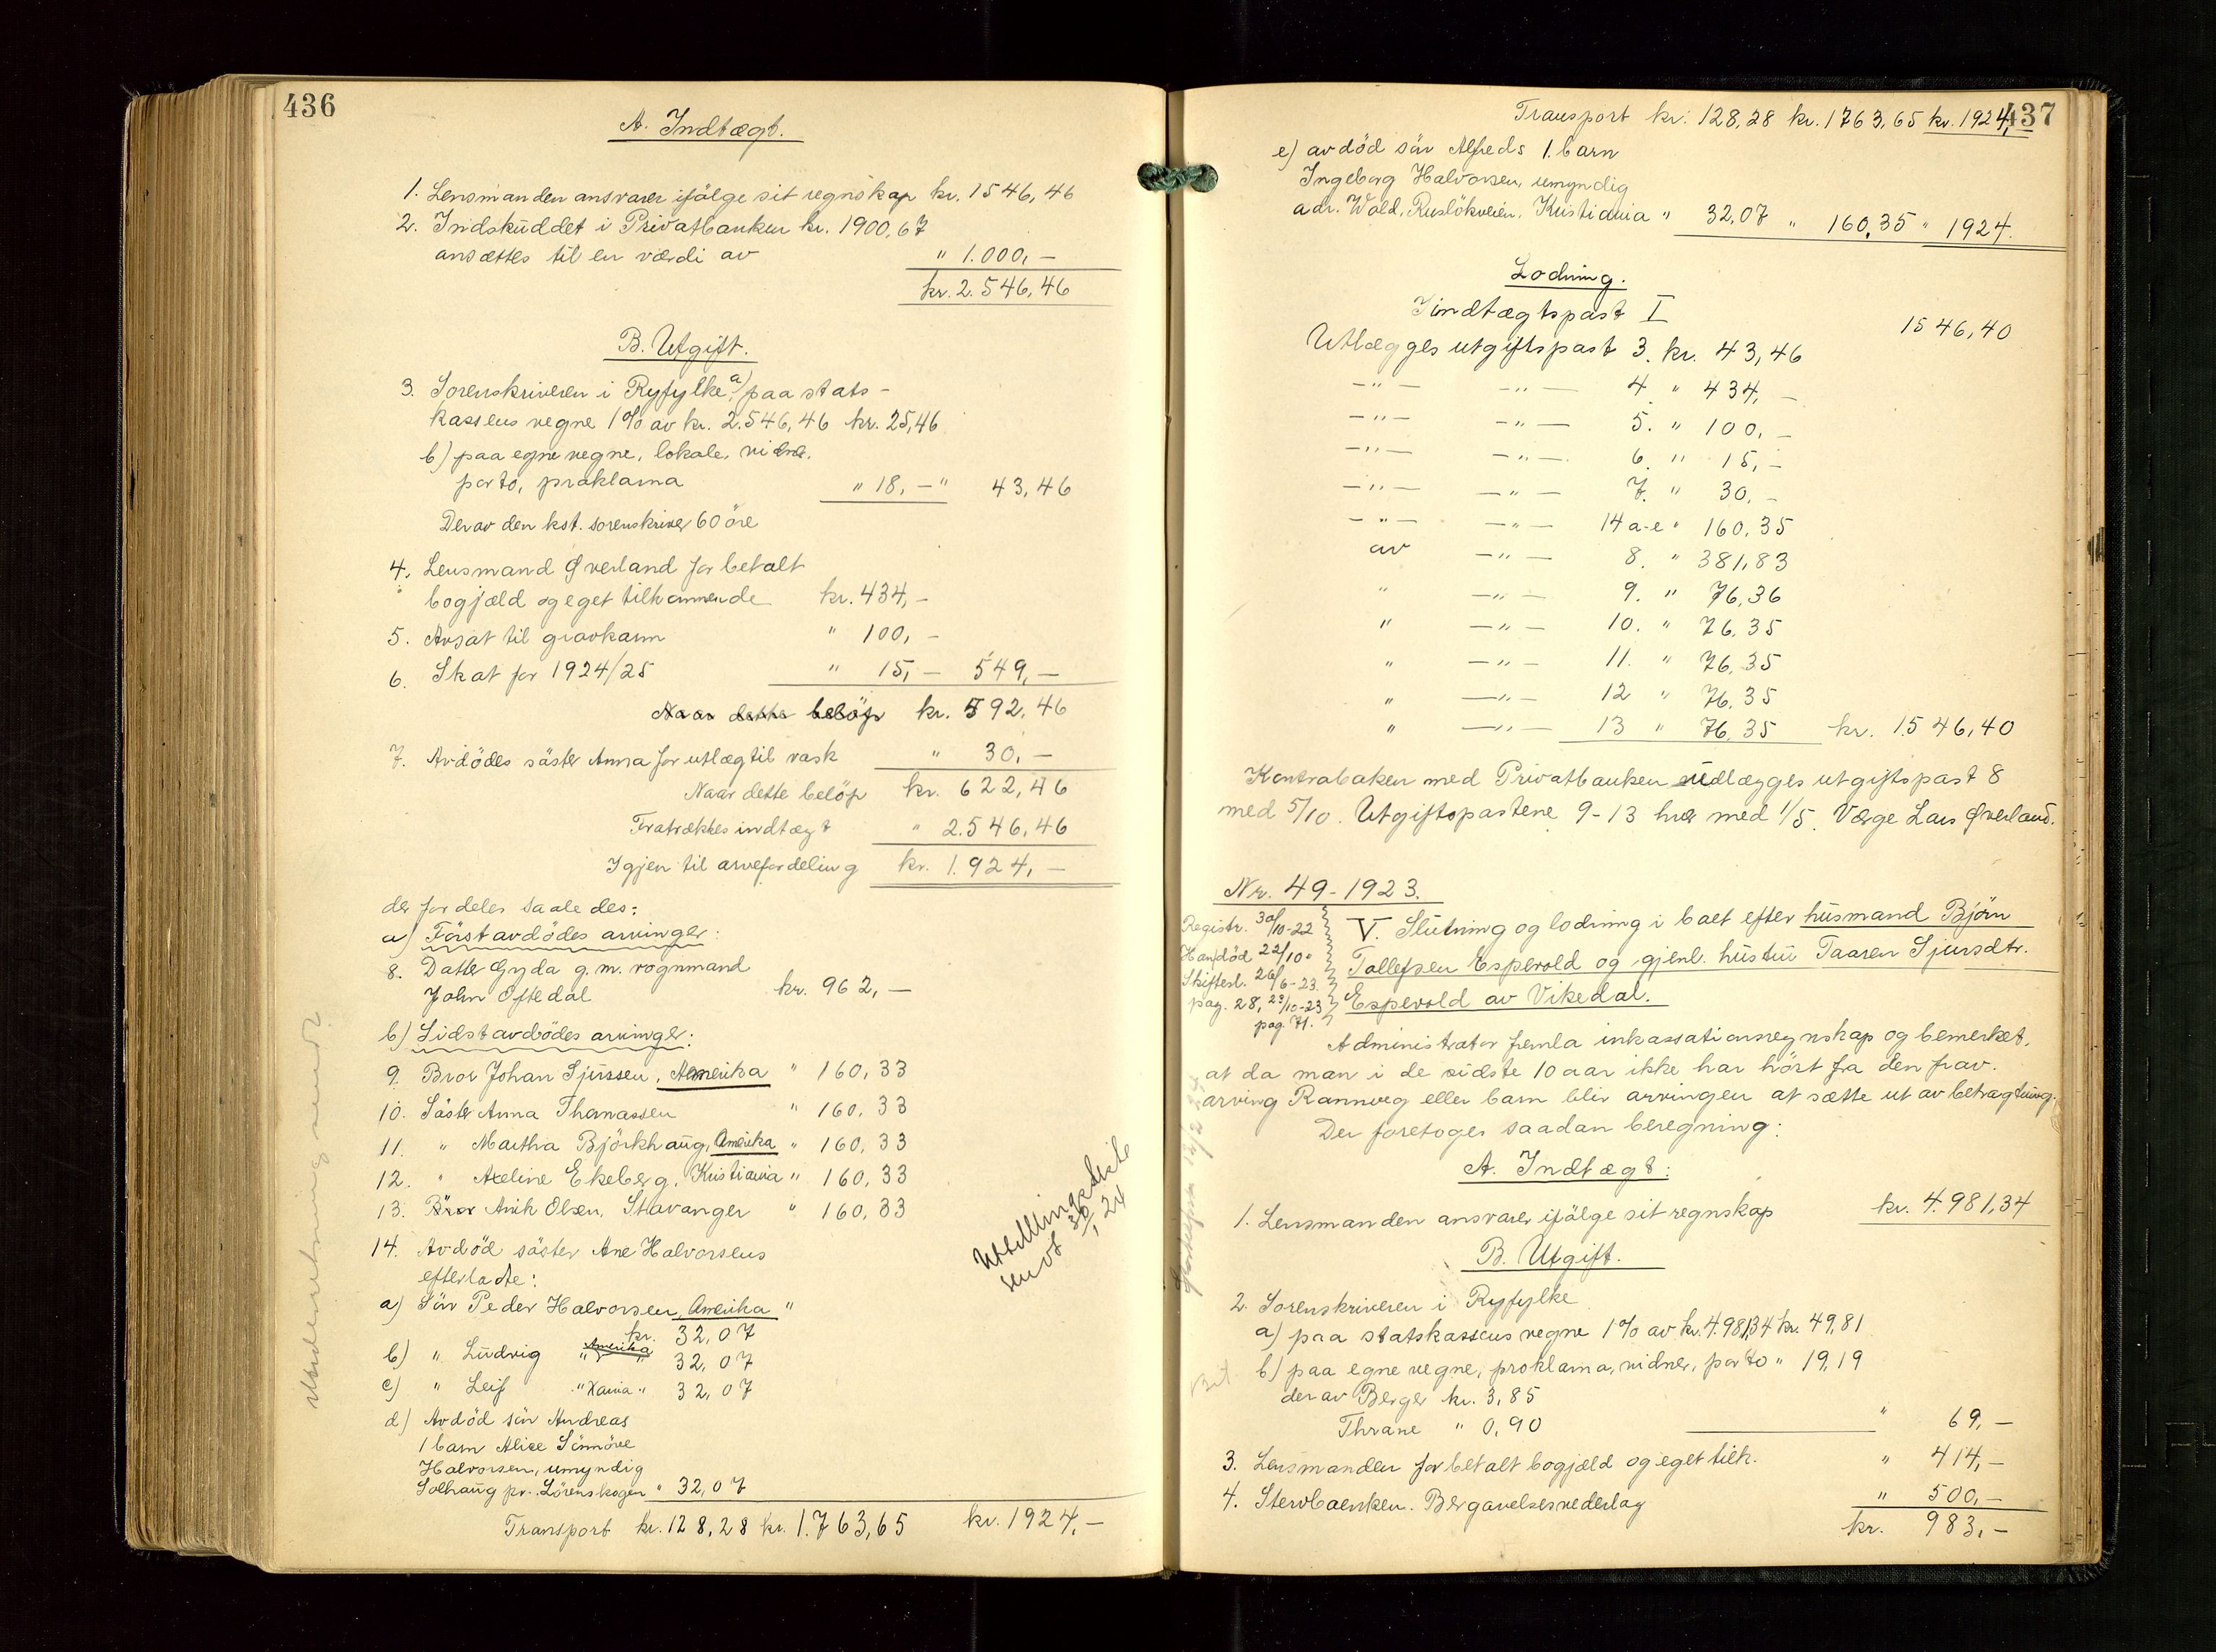 436
A. Indtægt.
1. Lensmanden ansvarer ifölge sit regnskap kr. 1546,46
2. Indskuddet i Privatbanken kr. 1900,67
ansættes til en værdi av " 1.000,-
kr. 2.546,46
B. Utgift.
3. Sorenskriveren i Ryfylke a) paa stats-
kassens vegne 1% av kr. 2.546,46 kr. 25,46
b) paa egne vegne, lokale, vidner,
porto, proklama " 18,- " 43,46
Derav den kst. sorenskriver 60 öre
4. Lensmand Øverland for betalt
bogjæld og eget tilkommende kr. 434,-
5. Avsat til gravkarm " 100,-
6. Skat for 1924/25 " 15,- 549,-
Naar dette belöp kr. 592,46
7. Avdödes söster Anna for utlæg til vask " 30,-
Naar dette belöp kr. 622,46
Fratrækkes indtægt " 2.546,46
Igjen til arvefordeling kr. 1.924,-
der fordeles saaledes:
a) Först avdödes arvinger:
8. Datter Gyda g. m. vognmand
John Oftedal kr. 962,-
b) Sidst avdödes arvinger:
9. Bror Johan Sjursen, Amerika " 160,33
10. Söster Anna Thomassen " 160,33
11. " Martha Björkhaug, Amerika " 160,33
12. " Axeline Ekeberg, Kristiania " 160,33
13. Bror Anik Olsen, Stavanger " 160,33
14. Avdöd söster Ane Halvorsens
efterladte:
a) Sön Peder Halvorsen, Amerika "
kr. 32,07
b) " Ludvig " Amerika " 32,07
c) " Leif " Xania " 32,07
d) Avdöd sön Andreas
1 barn Alice Synnöve
Halvorsen, umyndig
Solhaug pr. Lörenskogen " 32,07
Transport kr. 128,28 kr. 1.763,65 kr. 1924,-
Utdelling
sendt 30/1 24
437
Transport kr. 128,28 kr. 1763,65 kr. 1924,-
e) avdöd sön Alfreds 1. barn
Ingeborg Halvorsen, umyndig
adr. Wold, Ruslökveien, Kristiania " 32,07 " 160,35 " 1924.
Lodning.
Iindtægtspost I 1546,40
Utlægges utgiftspost 3. kr. 43,46
-"- -"- 4 " 434,-
-"- -"- 5. " 100,-
-"- -"- 6. " 15,-
-"- -"- 7. " 30,-
-"- -"- 14 a-e " 160,35
av -"- 8. " 381,83
" -"- 9. " 76,36
" -"- 10. " 76,35
" -"- 11. " 76,35
" -"- 12 " 76,35
" -"- 13 " 76,35 kr. 1546,40
Kontraboken med Privatbanken udlægges utgiftspost 8
med 5/10. Utgiftspostene 9-13 hver med 1/5. Værge Lars Øverland.
Nr. 49-1923.
Registr. 30/10-22
Han död 22/10 "
Skiftesl. 26/6-23.
pag. 28, 23/10-23
pag. 71.
V. Slutning og lodning i boet efter husmand Björn
Tollefsen Espevold og gjenl. hustru Taaren Sjursdtr.
Espevold av Vikedal.
Administrator fremla inkassationsregnskap og bemerket,
at da man i de sidste 10 aar ikke har hört fra den frav.
arving Rannveg eller barn blir arvingen at sætte ut av betragtning.
Der foretoges saadan beregning:
A. Indtægt:
1. Lensmanden ansvarer ifölge sit regnskap kr. 4.981,34
B. Utgift.
2. Sorenskriveren i Ryfylke
a) paa statskassens vegne 1% av kr. 4.981,34 kr. 49,81
b) paa egne vegne, proklama, vidner, porto " 19,19
derav Berger kr. 3,85
Thrane " 0,90 " 69,-
3. Lensmanden for betalt bogjæld og eget tilk. " 414,-
4. Stervboenken. Begravelsesvederlag " 500,-
kr. 983,-